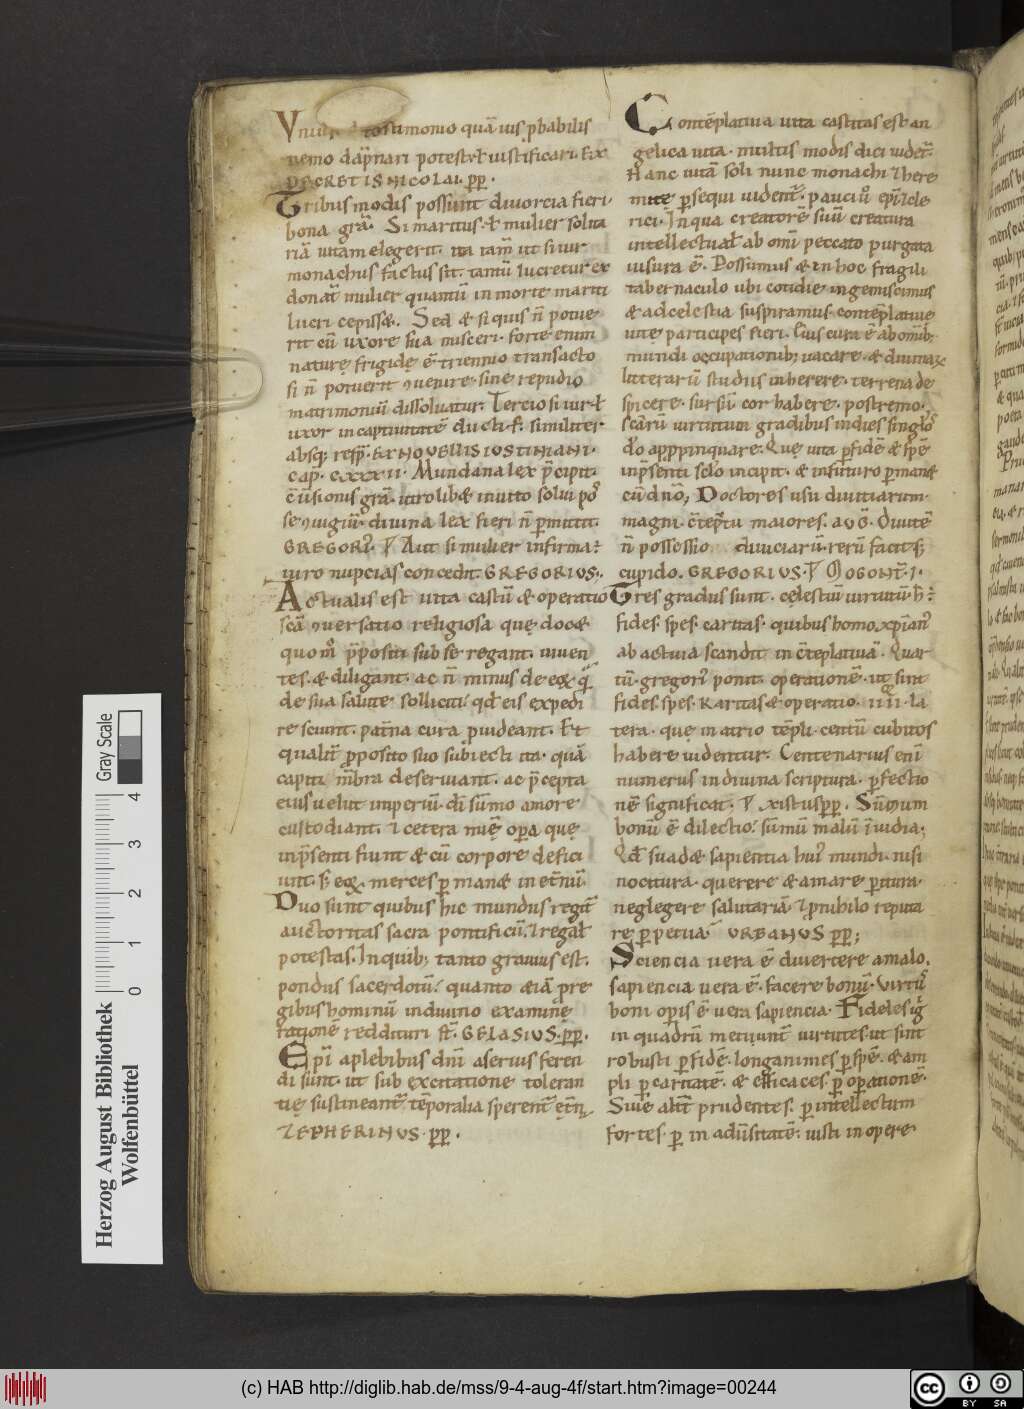 testimonio quā iuſ ꝓbabiliſ
nemo dāpnari poteſt ł iuſtificari. Ex
DECRETIS NICOLAI. pp.
Tribuſ modiſ poſſunt diuorcia fieri
bona grā. Si marituſ ł mulier ſolita
riā uitam elegerit. ita tam̄ ut ſi uir
monachuſ factuſ ſit. tantū lucretur ex
donat̄ mulier quantū in morte mariti
lucri cepiſſ&. Sed & ſi quiſ n̄ potue
rit cū uxore ſua miſceri. forte enim
naturę frigidę ē triennio tranſacto
ſi n̄ potuerit ꝯuenire. ſine repudio
matrimoniū diſſoluatur. Tercio ſi uir ł
uxor in captiuitatē ducti ſt̄. ſimiliter
abſq; reſp̄. EX NOVELLIS IUSTINIANI.
cap. cxxxxii. Mundana lex p̄cipit.
c̄uſioniſ grā. utrolib& inuito ſolui poſ
ſe ꝯiugiū. diuina lex fieri n̄ ꝑmittit.
GREGORI᾿. Aut ſi mulier infirma
uiro nupciaſ concedit. GREGORIUS.
Actualiſ eſt uita caſtū & operatio
ſcā ꝯuerſatio religioſa quę doc&
quom̊ p̄poſiti ſub ſe regant. uiuen
teſ. & diligant. ac n̄ minuſ de eoꝝ q̄
de ſua ſalute ſolliciti qd̄ eiſ expedi
re ſciunt. pat̄na cura ꝓuideant. Et
qualit̄ ꝓpoſito ſuo ſubiecti ita. quā
capiti m̄bra deſeruiant. ac p̄cepta
eiuſ uelut imperiū. dī ſūmo amore
cuſtodiant. & cetera om̄ē opera quę
inp̄ſenti fiunt & cū corpore defici
unt. ſ; eoꝝ merceſ ꝑman& in et̄nū.
Duo ſunt quibuſ hic munduſ regit̄
auctoritaſ ſacra pontificū. & regal̄
poteſtaſ. In quib; tanto grauiuſ eſt.
ponduſ ſacerdotū. quanto &iā pre
gibuſ hominū in diuino examine
rationē reddituri ſt̄. GELASIUS. pp.
Epī a plebibuſ dn̄i aſeruiſ feren
di ſunt. ut ſub excitatione toleran
tię ſuſtineant̄. tēporalia ſperent̄ et̄n
ZEPHERINUS. pp.
Contēplatiua uita caſtitaſ eſt an
gelica uita. multiſ modiſ dici uidet̄.
Hanc uitā ſoli nunc monachi & here
mite ꝑſequi uident̄. pauci ů epī & cle
rici. In qua creatorē ſuū creatura
intellectual̄ ab omī peccato purgata
uiſura ē. Poſſumuſ & in hoc fragili
tabernaculo ubi cotidie ingemiſcimuſ
& ad celeſtia ſuſpiramuſ. contēplatiue
uite participeſ fieri. Cuiſ cura ē ab omīb;
mundi occupationib; uacare. & diuinaꝝ
litterarū ſtudiiſ inherere. terrena de
ſpicere. ſurſū cor habere. poſtremo.
ſcārū uirtutum gradibuſ indieſ ſinglōſ
dō appꝑinquare. Que uita ꝑ fidē & ſpē
inp̄ſenti ſclō incipit. & in futuro ꝑman&
cū dn̄o. Doctoreſ uſu diuitiarum
magni. c̄teptu maioreſ. AUG̅. Diuitē
n̄ poſſeſſio diuiciarū. rerū facit ſ;
cupido. GREGORIUS. MOGONT̄. I.
Treſ graduſ ſunt. celeſtiū uirtutū. h̄.
fideſ. ſpeſ. caritaſ. quibuſ homo xp̄ian᾿
ab actiua ſcandit in c̄teplatiuā. Quar
tū gregori᾿ ponit. operationē. utq ſint
fideſ. ſpeſ. karitaſ & operatio. iiii. la
tera. que in atrio tēpli. centū cubitoſ
habere uidentur. Centenariuſ enī
numeruſ in diuina ſcriptura. ꝑfectio
nē ſignificat. xiſtuſ pp. Sūmum
bonū ē dilectio. ſūmū malū īuidia;
Qd̄ ſuad& ſapientia hui᾿ mundi. niſi
nocitura. querere & amare ꝑitura.
neglegere ſalutariā. & ꝓ nihilo reputa
re ꝑpetua. URBANUS pp;
Sciencia uera ē diuertere a malo.
ſapiencia uera ē. facere bonū. Virtuſ
boni opiſ ē uera ſapiencia. Fideleſ igr̄
in quadrū metiunt̄ uirtuteſ. ut ſint
robuſti ꝑ fidē. longanimeſ ꝑ ſpē. & am
pli ꝑ caritatē. & efficaceſ ꝑ oꝑationē.
Siue alit̄ prudenteſ. ꝑ intellectum
forteſ ꝑ in aduſitatē. iuſti in opere
Herzog August Bibliothek
Wolfenbüttel
Gray Scale
0 1 2 3 4
(c) HAB http://diglib.hab.de/mss/9-4-aug-4f/start.htm?image=00244
cc BY SA